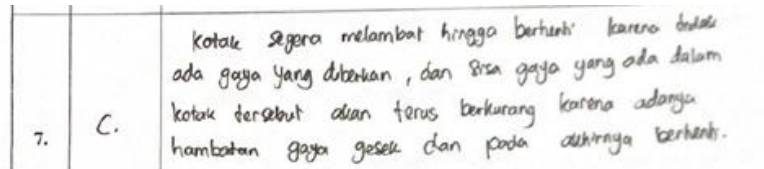 kotak segera melambat hingga berhenti karena tidak
ada gaya yang diberikan, dan sisa gaya yang ada dalam
7. C. kotak tersebut akan terus berkurang karena adanya
hambatan gaya gesek dan pada akhirnya berhenti.